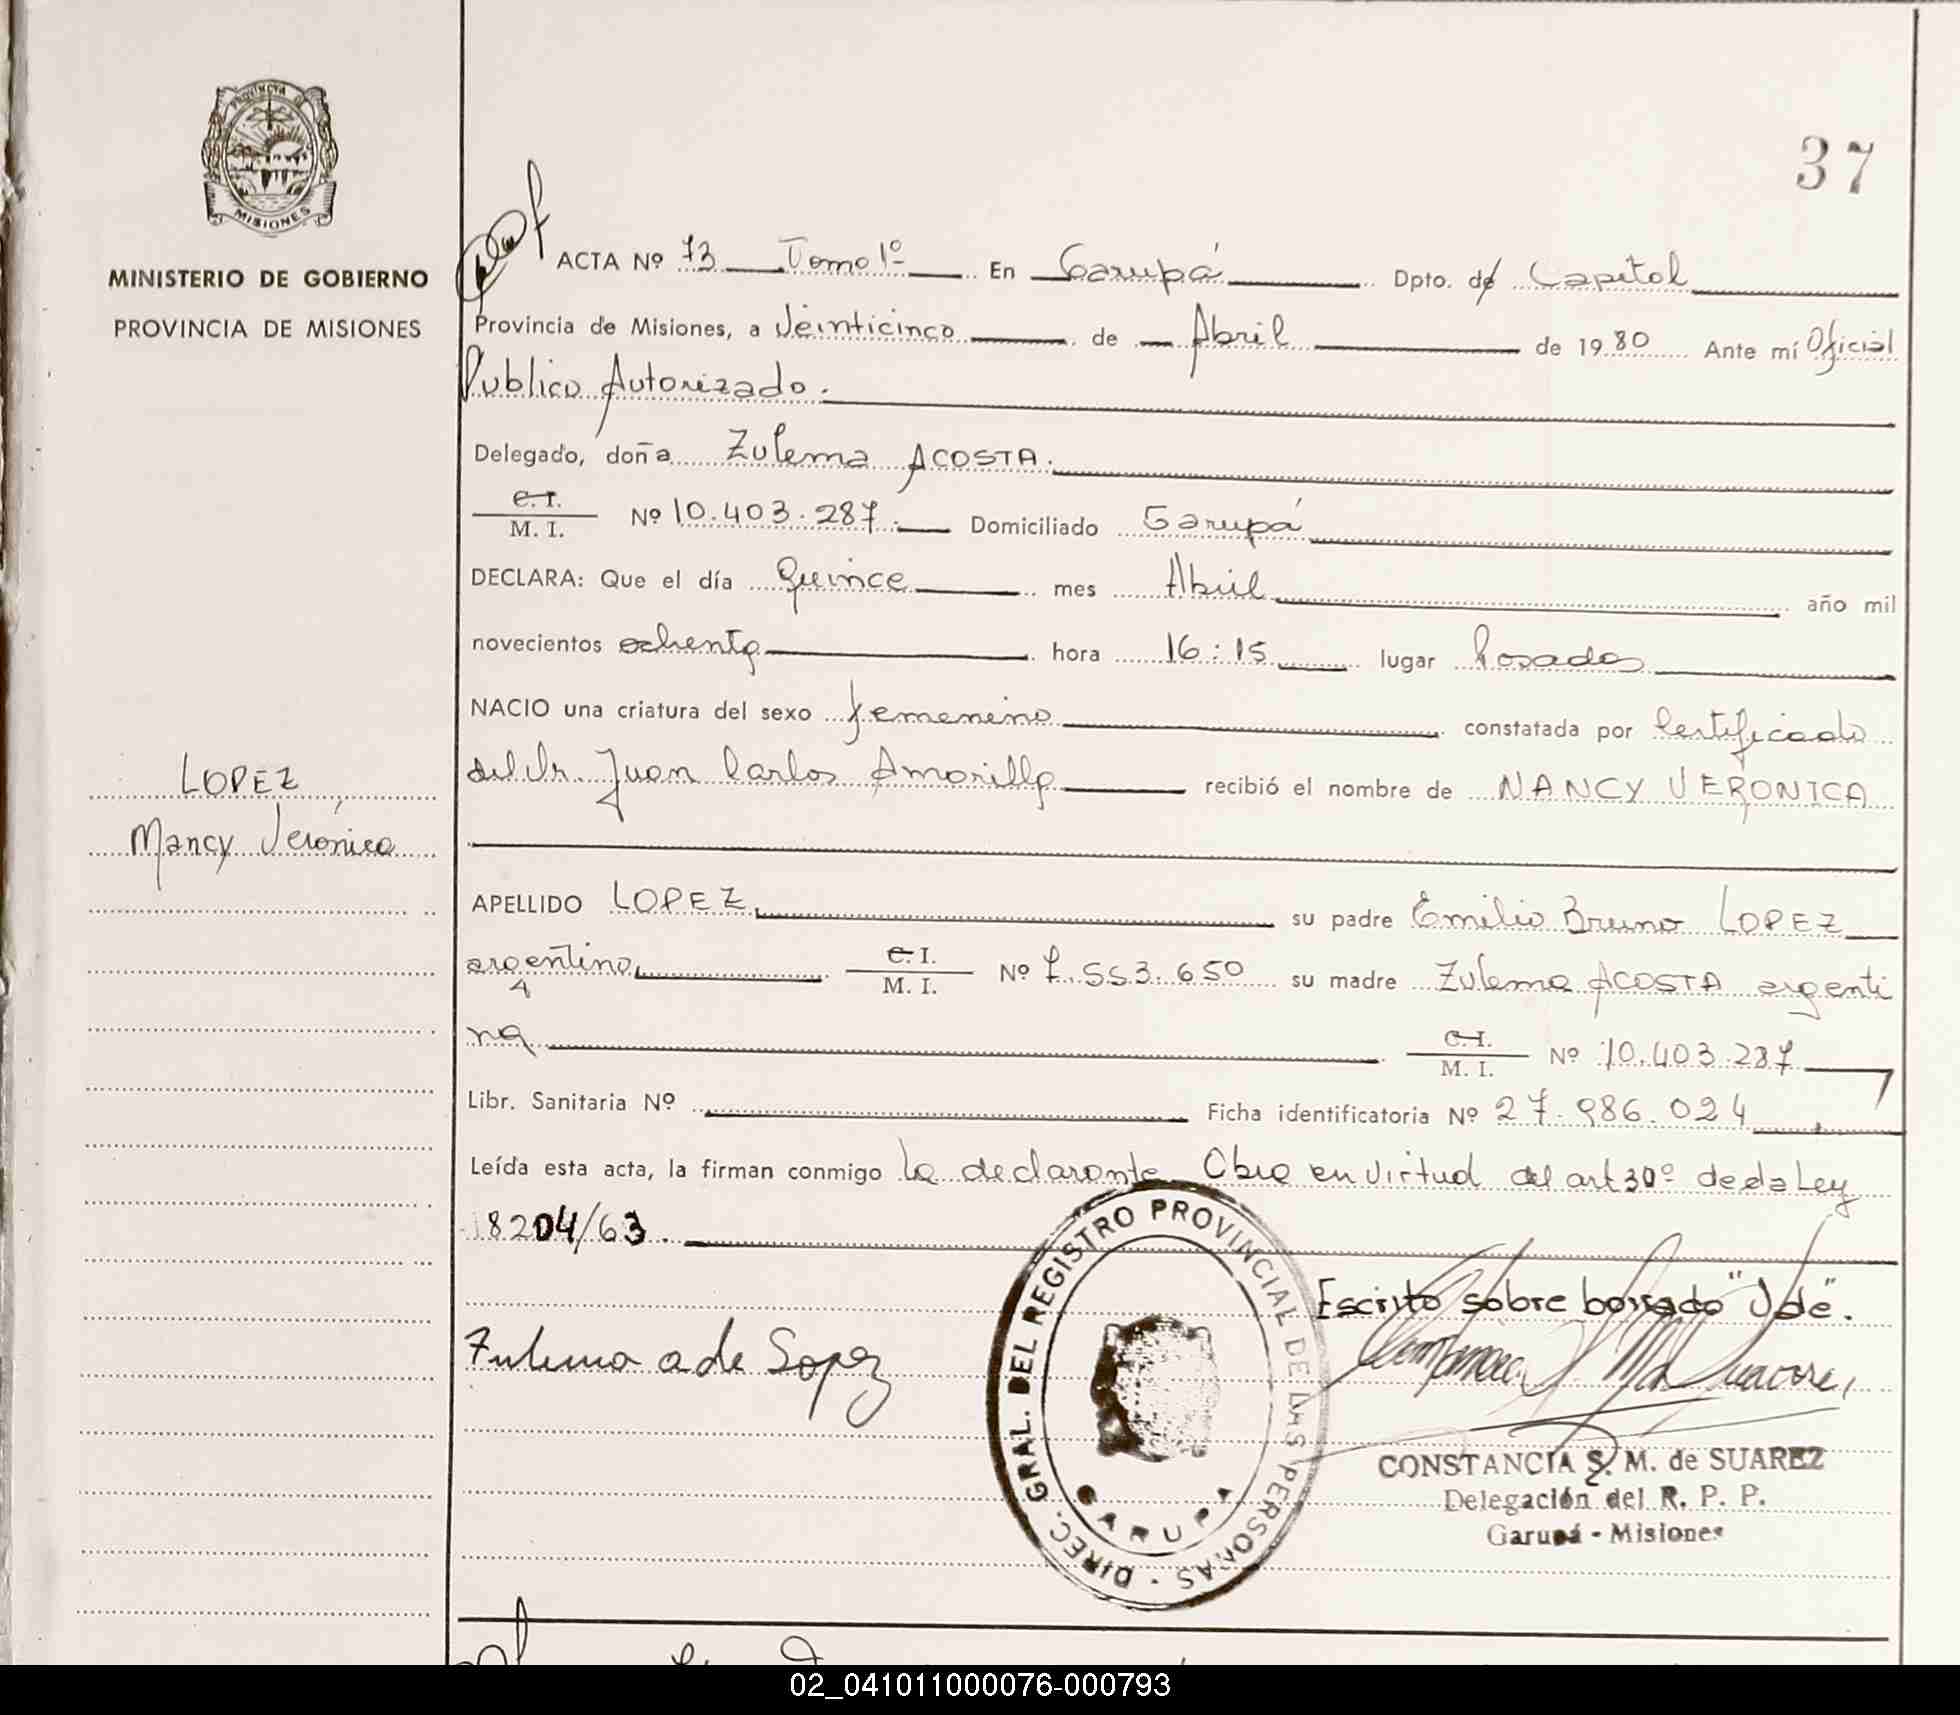 37
PROVINCIA DE
MISIONES
MINISTERIO DE GOBIERNO
PROVINCIA DE MISIONES
LOPEZ,
Nancy Verónica
ACTA Nº 73 Tomo 1º En Garupá Dpto. de Capital
Provincia de Misiones, a Veinticinco de Abril de 1980 Ante mí Oficial
Publico Autorizado.
Delegado, doña Zulema ACOSTA.
C. I.
M. I. Nº 10.403.287. Domiciliado Garupá
DECLARA: Que el día Quince mes Abril año mil
novecientos ochenta hora 16:15 lugar Posadas
NACIO una criatura del sexo femenino constatada por Certificado
del Dr. Juan Carlos Amarilla recibió el nombre de NANCY VERONICA
APELLIDO LOPEZ, su padre Emilio Bruno LOPEZ
argentino, C. I. M. I. Nº 7.553.650 su madre Zulema ACOSTA argenti
na C. I. M. I. Nº 10.403.287
Libr. Sanitaria Nº Ficha identificatoria Nº 27.986.024
Leída esta acta, la firman conmigo la declarante Obra en virtud del art 30º de la Ley
18204/63.
Escrito sobre borrado "J de".
Zulema a de Lopez
DIREC. GRAL. DEL REGISTRO PROVINCIAL DE LAS PERSONAS
GARUPA
CONSTANCIA S. M. de SUAREZ
Delegación del R. P. P.
Garupá - Misiones
02_041011000076-000793